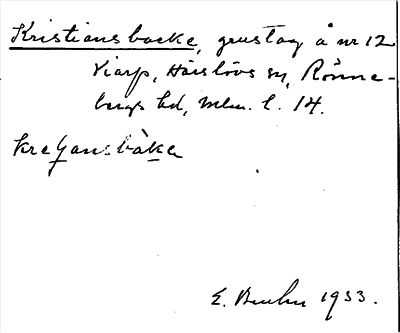 Kristiansbacke, grustag å nr 12
Viarp, Häislövs sn, Rönne-
bergs hd, Mlm. l. 14.
kreʃansbàka
E. 1933.